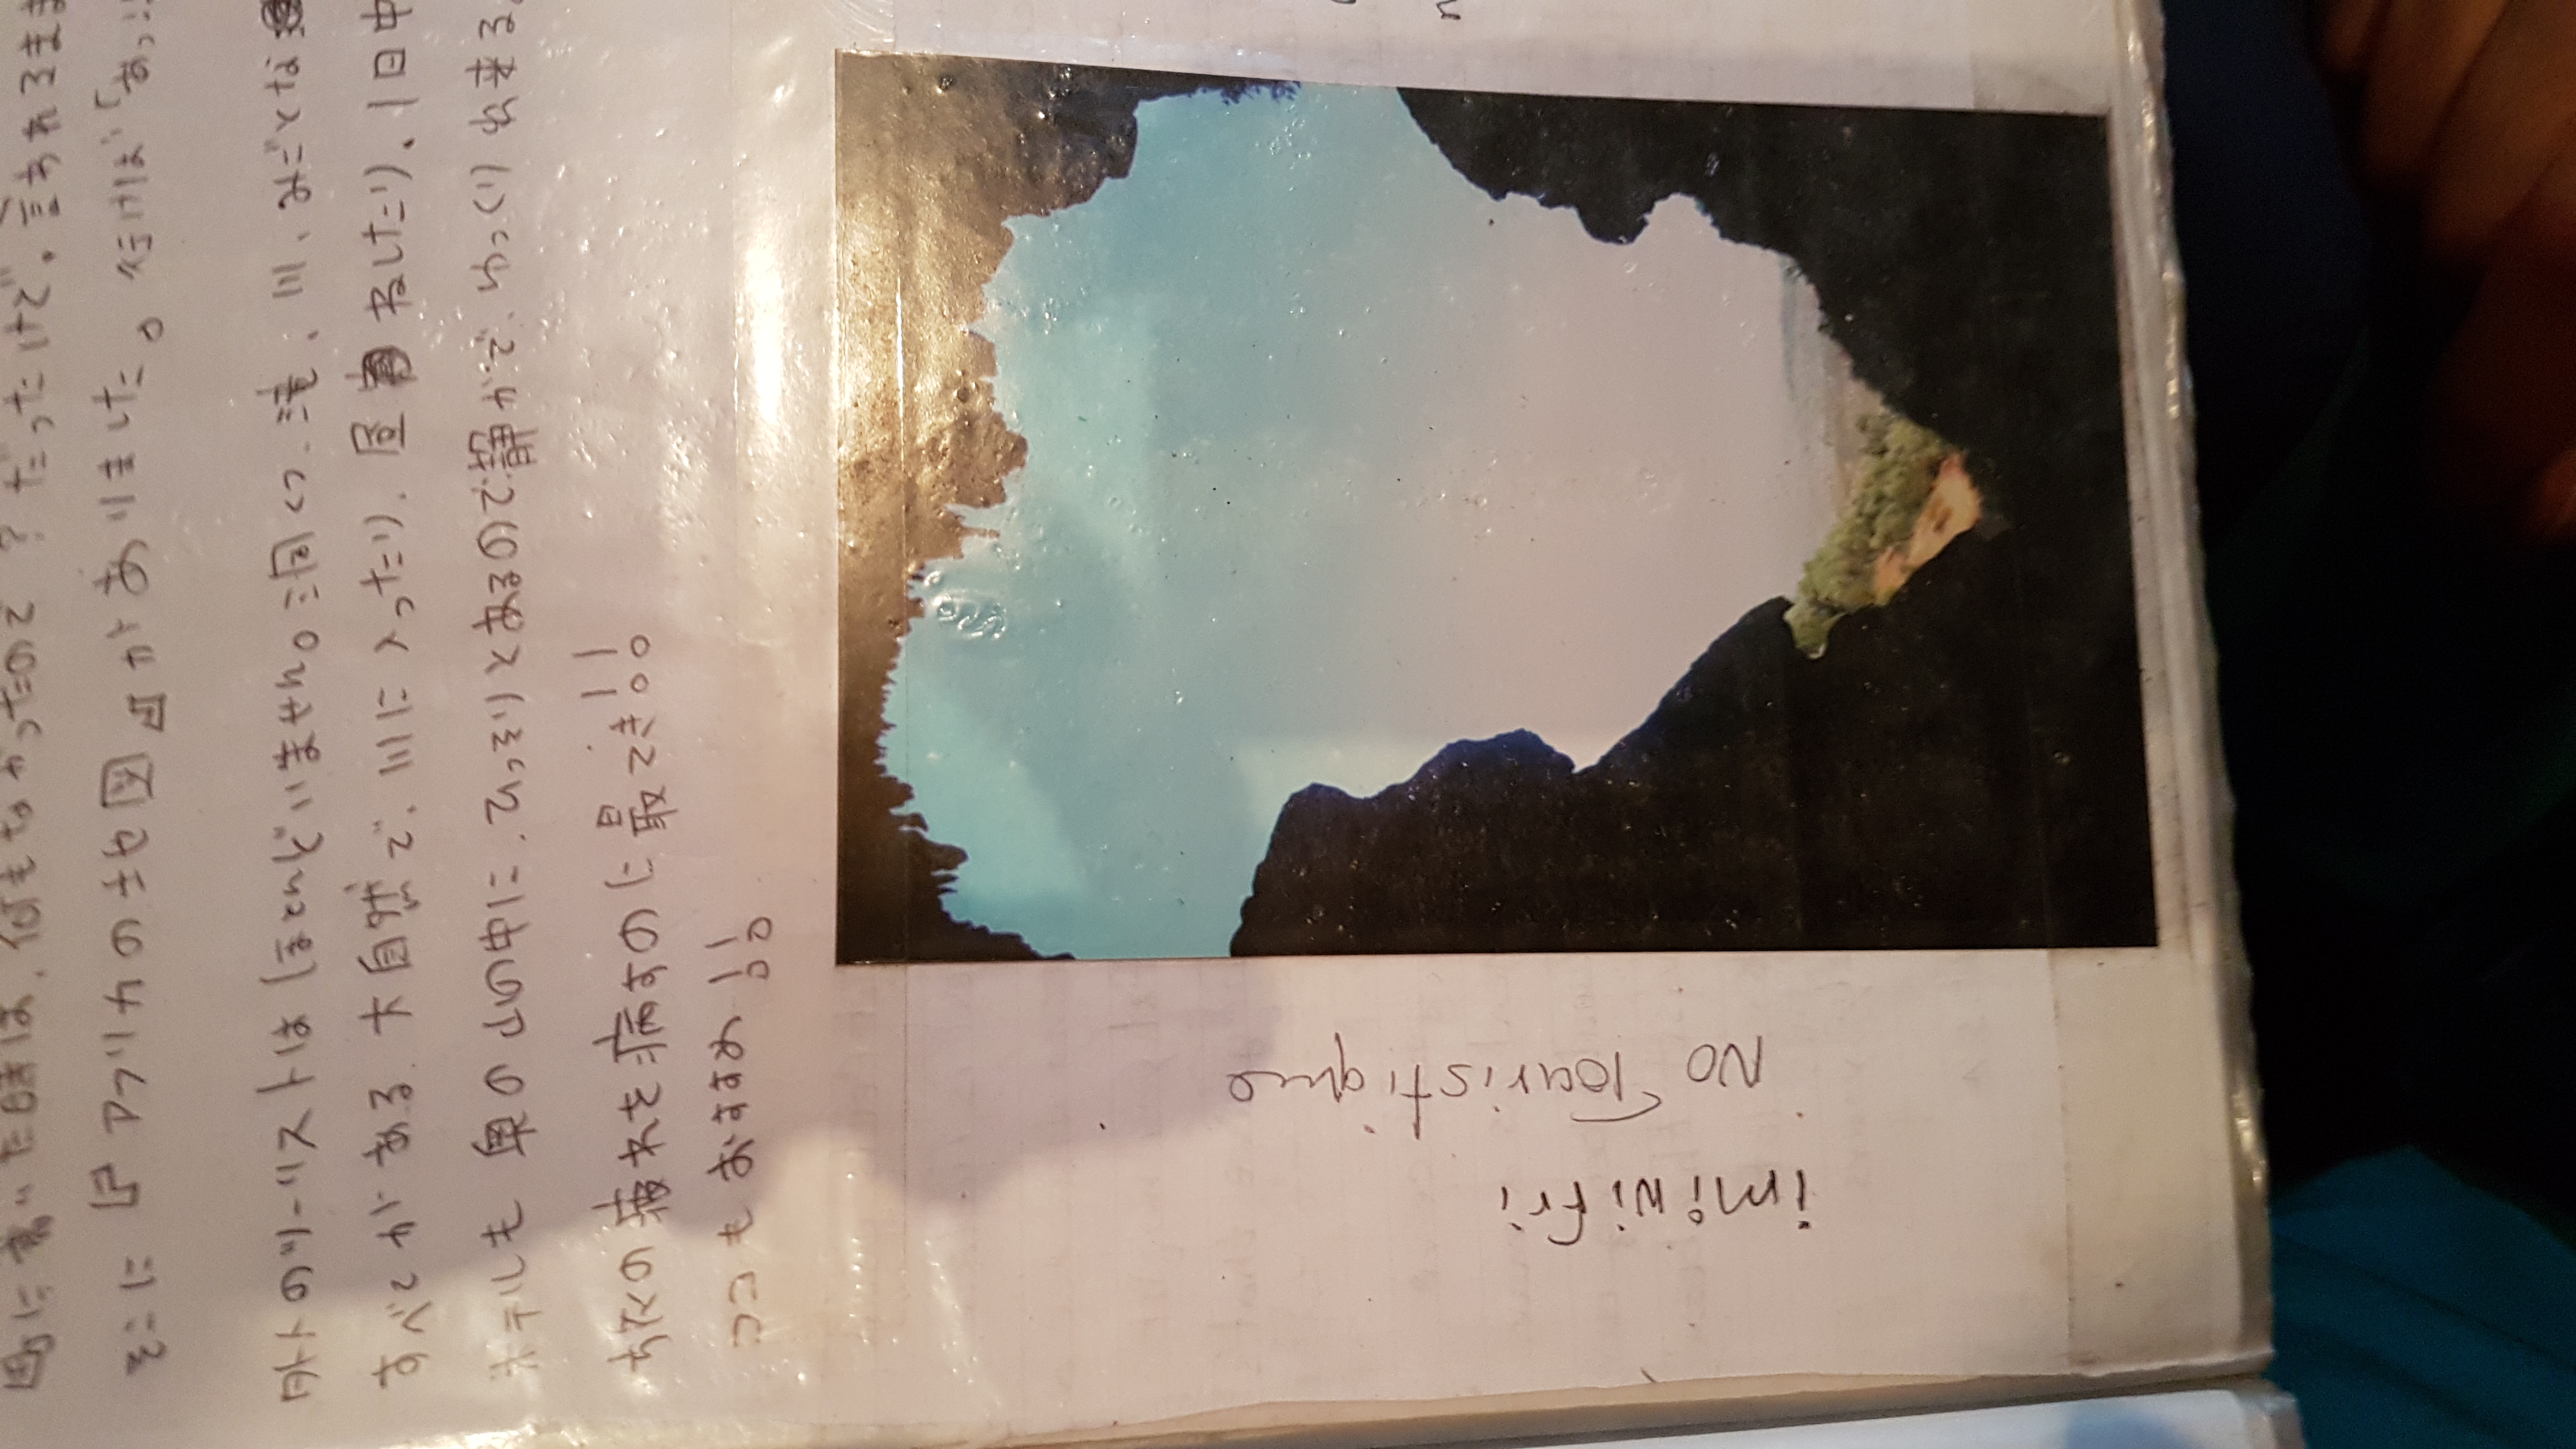 に着いた時は、何もなかったので ? だったけど。言われるまま
そこに『アフリカの地図』がありました。行けば「あっ
外のツーリストはほとんどいません。洞くつ、滝、川、みごとな
すべてがある。大自然で、川に入ったり、昼ねしたり、1日中
ホテルも奥の山の中に、ひっそりとあるので静かで、ゆっくり出来る。
旅の疲れを病すのに最てき!!
ココもおすすめ!!
imiNifri
No Touristique